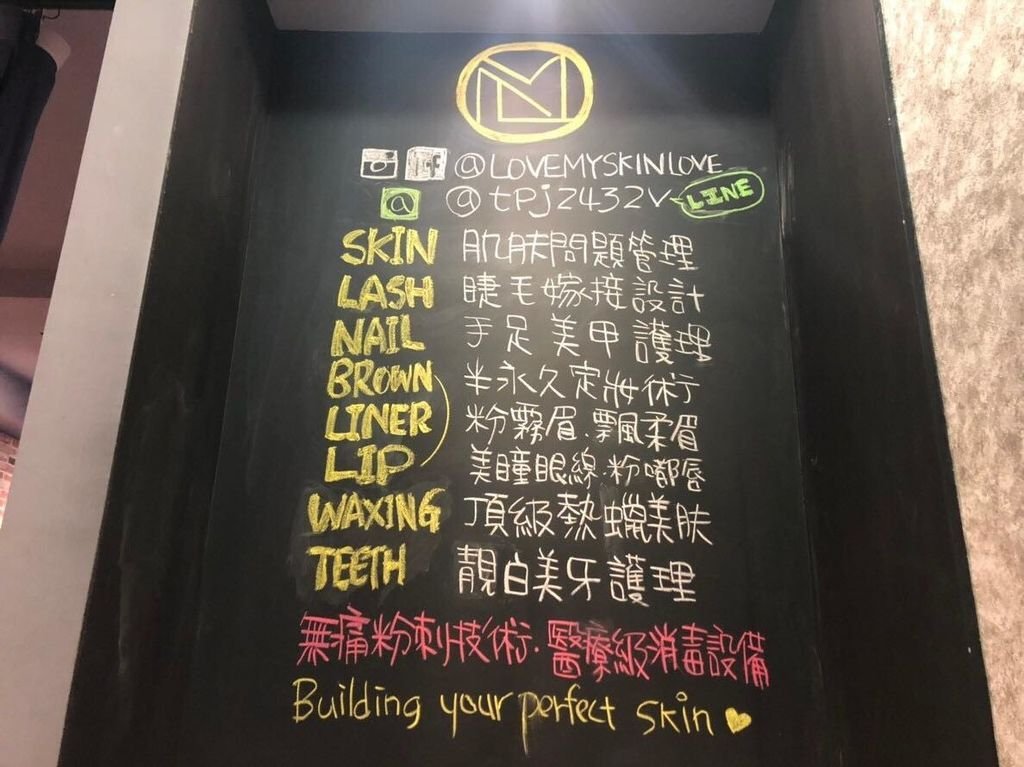 @LOVEMYSKINLOVE
@tpj2432v LINE
SKIN 肌膚問題管理
LASH 睫毛嫁接設計
NAIL 手足美甲護理
BROWN 半永久定妝術
LINER 粉霧眉.飄柔眉
LIP 美瞳眼線.粉嘟唇
WAXING 頂級熱蠟美膚
TEETH 靚白美牙護理
無痛粉刺技術.醫療級消毒設備
Building your perfect skin